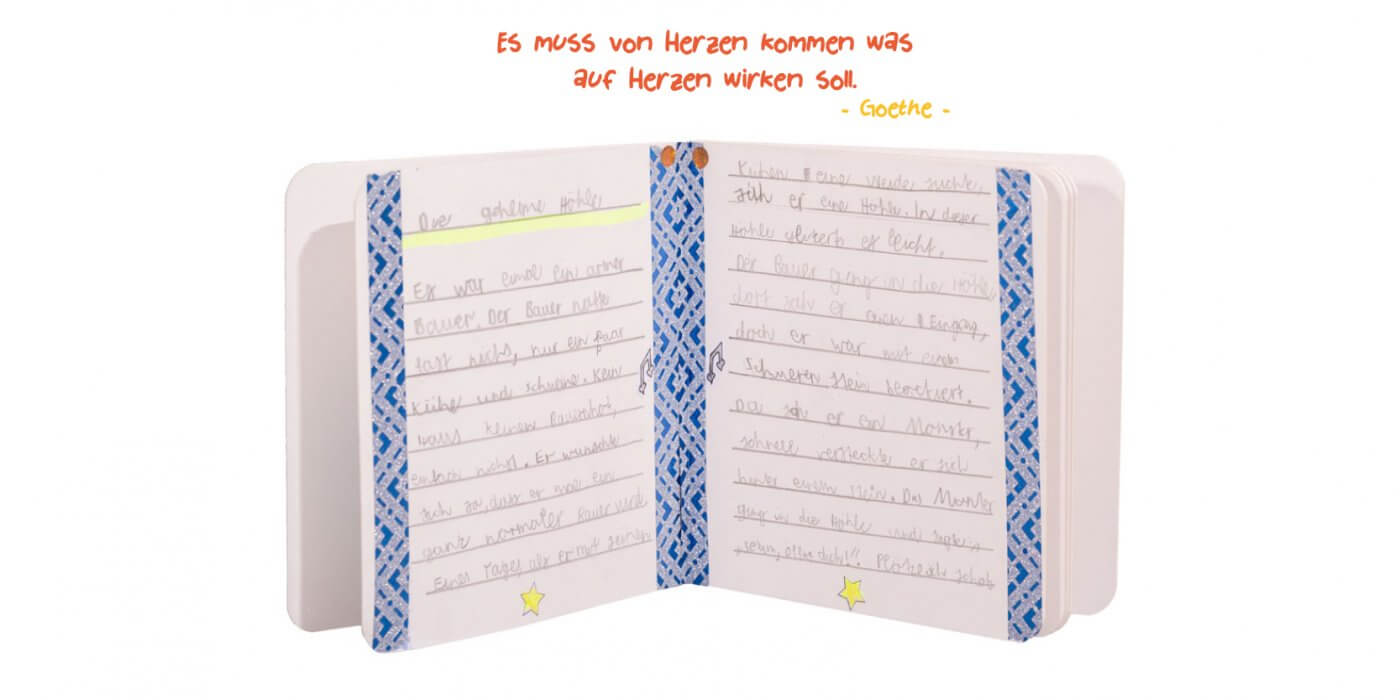 Es muss von Herzen kommen was
auf Herzen wirken soll.
- Goethe -
Die geheime Höhle
Es war einmal ein armer
Bauer. Der Bauer hatte
fast nichts, nur ein paar
Kühe und Schweine. Kein
Haus keinen Bauernhof,
einfach nichts. Er wünschte
sich so, dass er mal ein
ganz normaler Bauer wird.
Eines Tages, als er mit seinen
Kühen eine Weide suchte,
sah er eine Höhle. In dieser
Höhle es leicht.
Der Bauer ging in die Höhle,
dort sah er einen Eingang,
doch er war mit einem
schweren Stein
Da sah er ein Monster,
schnell versteckte er sich
hinter einem Stein. Das Monster
ging in die Höhle und
öffne dich!". Plötzlich schob